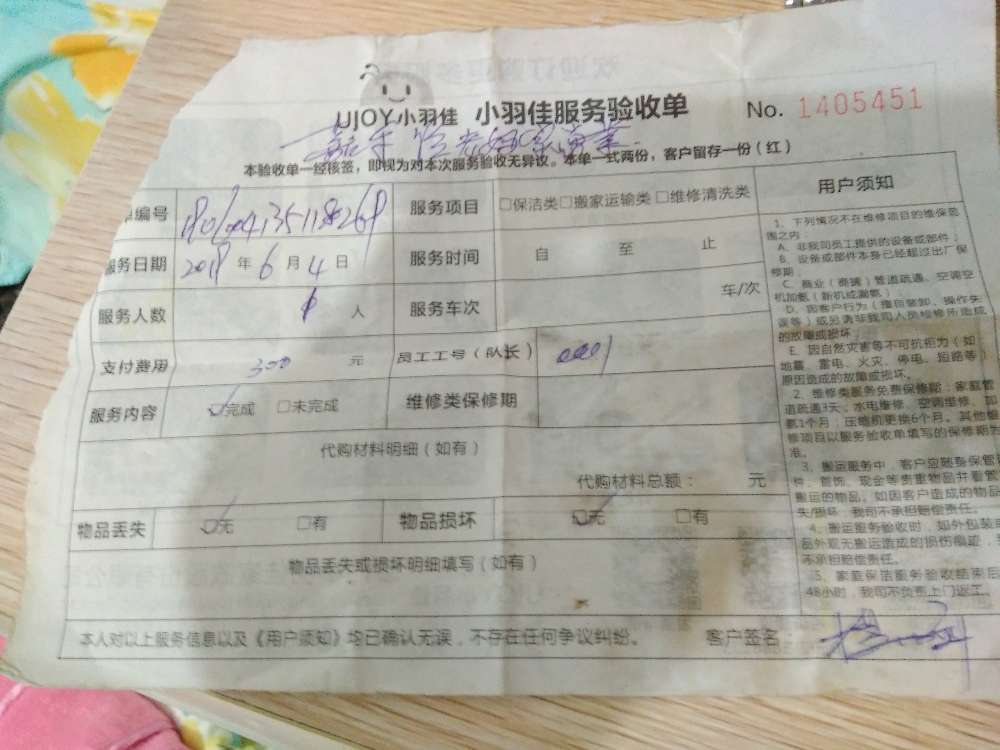 UJOY小羽佳 小羽佳服务验收单 No. 1405451
本验收单一经核签，即视为对本次服务验收无异议。本单一式两份，客户留存一份（红）
单编号 服务项目 □保洁类□搬家运输类□维修清洗类
服务日期 2018 年 6 月 4 日 服务时间 自 至 止
服务人数 1 人 服务车次 车/次
支付费用 300 元 员工工号（队长）
服务内容 ☑完成 □未完成 维修类保修期
代购材料明细（如有）
代购材料总额： 元
物品丢失 ☑无 □有 物品损坏 ☑无 □有
物品丢失或损坏明细填写（如有）
本人对以上服务信息以及《用户须知》均已确认无误，不存在任何争议纠纷。 客户签名：
用户须知
1、下列情况不在维修项目的维保范
围之内：
A、非我司员工提供的设备或部件；
B、设备或部件本身已经超过出厂保
修期；
C、商业（商铺）管道疏通、空调空
机加氨（新机或漏氨）；
D、因客户行为（擅自装卸、操作失
误等）或另请非我司人员维修所造成
的故障或损坏；
E、因自然灾害等不可抗拒力（如
地震、雷电、火灾、停电、短路等）
原因造成的故障或损坏。
2、维修类服务免费保修期：家庭管
道疏通3天；水电维修、空调维修、加
氨1个月；压缩机更换6个月。其他维
修项目以服务验收单填写的保修期为
准。
3、搬运服务中，客户应随身保管证
件、首饰、现金等贵重物品并看管
搬运的物品。如因客户造成的物品
失/损坏，我司不承担赔偿责任。
4、搬运服务验收时，如外包装
品外观无搬运造成的损伤痕迹，
不承担赔偿责任。
5、家庭保洁服务验收结束后
48小时，我司不负责上门返工。